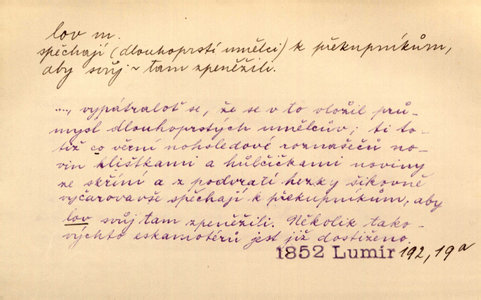 lov m.
spěchají (dlouhoprstí umělci) k překupníkům,
aby svůj ~ tam zpeněžili.
..., vypátralot se, že se v to vložil prů-
mysl dlouhoprstých umělcův; ti to-
tiž co věrní nohsledové roznašečů no-
vin klíštkami a hůlčičkami noviny
ze skříní a z podvratí hezky šikovně
vyčarovavše spěchají k překupníkům, aby
lov svůj tam zpeněžili. Několik tako-
výchto eskamotérů jest již dostiženo.
1852 Lumír 192, 19a